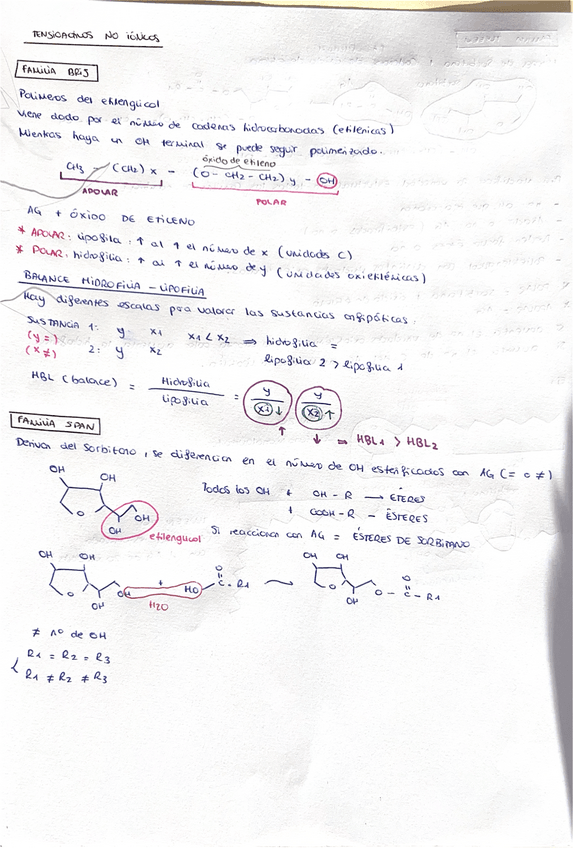 TENSIOACTIVOS NO IÓNICOS
FAMILIA BRIJ
Polimeros del etilenglicol
Viene dado por el número de cadenas hidrocarbonadas (etilénicas)
Mientras haya un OH terminal se puede seguir polimerizado.
óxido de etileno
CH3 - (CH2) x - (O - CH2 - CH2) y - OH
APOLAR
POLAR
AG + ÓXIDO DE ETILENO
* APOLAR: lipofilia: ↑ al ↑ el número de x (unidades C)
* POLAR: hidrofilia: ↑ al ↑ el número de y (unidades oxietilénicas)
BALANCE HIDROFILIA - LIPOFILIA
Hay diferentes escalas para valorar las sustancias anfipáticas.
SUSTANCIA 1: y x1 x1 < x2 ⇒ hidrofilia =
(y =)
(x ≠) 2: y x2 lipofilia 2 > lipofilia 1
HBL (balace) = Hidrofilia / Lipofilia = y / x1 ↓ y / x2 ↑
↑ ↓ ⇒ HBL1 > HBL2
FAMILIA SPAN
Derivan del sorbitano, se diferencian en el número de OH esterificados con AG (= o ≠)
OH OH
Todos los OH + OH - R → ÉTERES
+ COOH - R - ÉSTERES
O OH
OH
etilenglicol
Si reaccionan con AG = ÉSTERES DE SORBITANO
OH OH O OH OH
O OH + HO - C - R1 O O - C - R1
OH H2O OH
≠ nº de OH
R1 = R2 = R3
R1 ≠ R2 ≠ R3